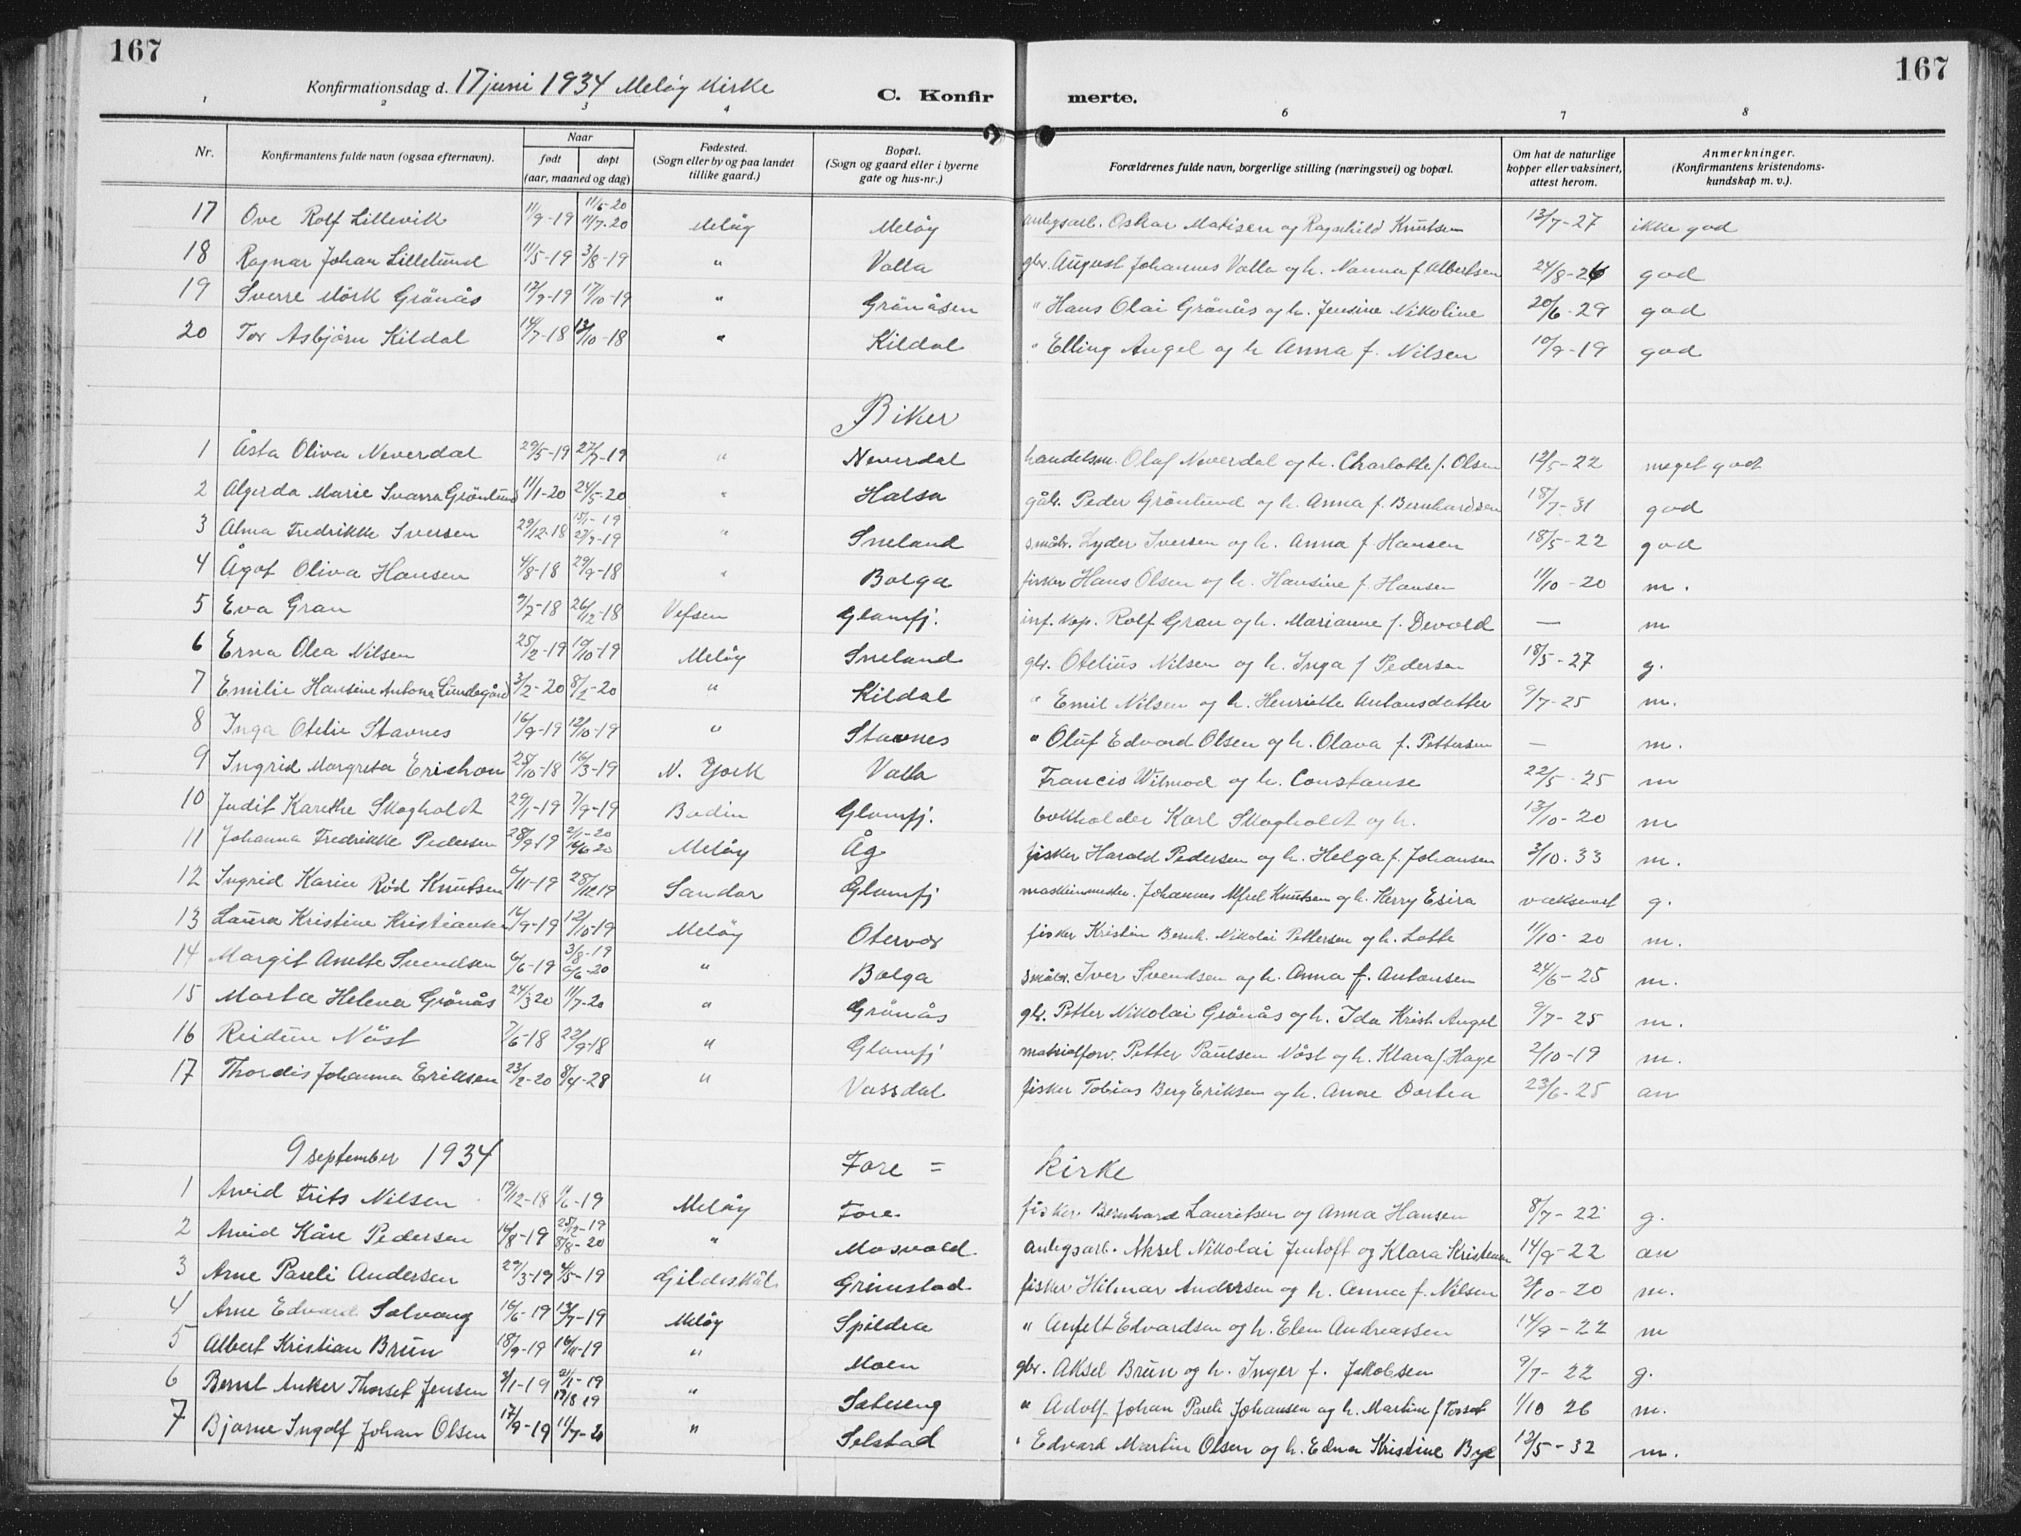 167
167
Konfirmationsdag d. 17 juni 1934 Meløy Kirke
C. Konfirmerte.
1 2 3 4 6 7 8
Nr. Konfirmantens fulde navn (ogsaa efternavn). Naar født døpt (aar, maaned og dag) Fødested. (Sogn eller by og paa landet tillike gaard.) Bopæl. (Sogn og gaard eller i byerne gate og hus-nr.) Forældrenes fulde navn, borgerlige stilling (næringsvei) og bopæl. Om hat de naturlige kopper eller vaksinert, attest herom. Anmerkninger. (Konfirmantens kristendoms-kundskap m. v.).
17 Ove Rolf Lillevik 11/9-19 11/5-20 11/7-20 Meløy Meløy anlegsarb. Oskar Matisen og Ragnhild Knutsen 13/7-27 ikke god
18 Ragnar Johan Lillelund 11/5-19 3/8-19 " Valla gbr. August Johannes Valla og h. Nanna f. Albertsen 24/8-26 god
19 Sverre Mörk Grönås 12/9-19 17/10-19 " Grönåsen " Hans Olai Grönås og h. Jensine Nikoline 20/6-29 god
20 Tor Asbjørn Kildal 14/7-18 13/10-18 " Kildal " Elling Angel og h Anna f. Nilsen 10/9-19 god
Piker
1 Åsta Oliva Neverdal 29/5-19 27/7-19 " Neverdal handelsm. Olaf Neverdal og h. Charlotte f. Olsen 12/5-22 meget godt
2 Algerda Marie Svarra Grönlund 11/1-20 24/5-20 " Halsa gåbr. Peder Grönlund og h. Anna f. Bernhardsen 18/7-31 god
3 Alma Fredrikke Iversen 29/12-18 15/1-19 27/7-19 " Sneland småbr. Lyder Iversen og h. Anna f. Hansen 18/5-22 god
4 Ågot Oliva Hansen 4/8-18 29/9-18 " Bolga fisker Hans Olsen og h. Hansine f. Hansen 11/10-20 m.
5 Eva Gran 9/7-18 26/12-18 Vefsen Glomfj. inf. kap. Rolf Gran og h. Marianne f. Devold — m
6 Erna Olea Nilsen 25/2-19 19/10-19 Meløy Sneland gbr. Otelius Nilsen og h. Inga f Pedersen 18/5-27 g.
7 Emilie Hansine Antona Lundegård 3/2-20 8/2-20 " Kildal " Emil Nilsen og h. Henriette Antonsdatter 9/7-25 m.
8 Inga Otelie Stavnes 16/9-19 12/10-19 " Stavnes " Oluf Edvard Olsen og h. Olava f. Pettersen — m.
9 Ingrid Margreta Erickson 25/10-18 16/3-19 N. York Valla Francis Wilmod og h. Constanse 22/5-25 m
10 Judit Karethe Skogholdt 29/1-19 7/9-19 Bodin Glomfj. bokholder Karl Skogholdt og h. 13/10-20 m
11 Johanna Fredrikke Pedersen 28/9-19 2/1-20 16/6-20 Meløy Åg fisker Harald Pedersen og h. Helga f. Johansen 3/10-33 m.
12 Ingrid Karin Rød Knutsen 6/11-19 28/12 19 Sandar Glomfj maskinmester. Johannes Alfred Knutsen og h. Herry Esira vaksinert g.
13 Laura Kristine Kristiansen 14/9-19 12/10-19 Meløy Otervær fisker Kristin Bernh. Nikolai Pettersen og h. Lotte 11/10-20 m.
14 Margit Anette Svendsen 6/6-19 3/8-19 6/6-20 " Bolga småbr. Iver Svendsen og h. Anna f. Antonsen 24/6-25 m.
15 Marta Helena Grönås 24/3 20 11/7-20 " Grönås gbr. Petter Nikolai Grönås og h. Ida Krist. Angel 9/7-25 m.
16 Reidun Nöst 7/6-18 22/9-18 " Glomfj matrialforv. Petter Paulsen Nöst og h. Klara f. Hage 2/10-19 m.
17 Thordis Johanna Eriksen 23/2-20 8/4-28 " Vassdal fisker Tobias Berg Eriksen og h. Anne Dortea 23/6-25 an
9 september 1934 Fore = kirke
1 Arvid Frits Nilsen 19/12-18 1/6-19 Meløy Fore fisker Bernhard Lauritsen og Anna Hansen 8/7-22 g.
2 Arvid Kåre Pedersen 16/8-19 25/12-19 8/8-20 " Mosvold anlegsarb. Aksel Nikolai Jentoft og Klara Kristensen 14/9-22 an
3 Arne Pareli Andersen 29/3-19 4/5-19 Gildeskål Grimstad fisker Hilmar Andersen og h. Anna f. Nilsen 2/10-20 m.
4 Arne Edvard Solvang 16/6-19 13/7-19 Meløy Spildra " Anfelt Edvardsen og h. Elen Andreassen 14/9-22 m
5 Albert Kristian Brun 18/9-19 16/11-19 " Moen gbr. Aksel Brun og h. Inger f. Jakobsen 9/7-22 g.
6 Bernt Anker Thorset Jensen 2/1-19 21/1-19 17/8 19 " Sæteseng " Adolf Johan Pareli Johansen og h. Martine f Torset 1/10 26 m.
7 Bjarne Ingolf Johan Olsen 17/9-19 11/7-20 " Selstad " Edvard Martin Olsen og h. Edna Kristine Bye 12/5-32 m.